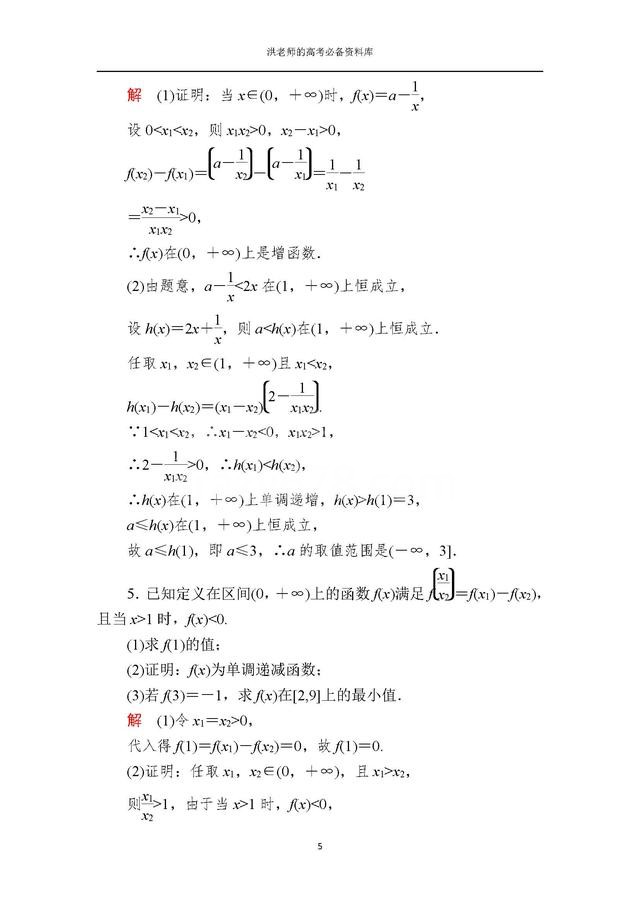 洪老师的高考必备资料库
解 (1)证明：当 x∈(0，+∞)时，f(x)=a-1/x，
设 0<x1<x2，则 x1x2>0，x2-x1>0，
f(x2)-f(x1)=(a-1/x2)-(a-1/x1)=1/x1-1/x2
=(x2-x1)/(x1x2)>0，
∴f(x)在(0，+∞)上是增函数．
(2)由题意，a-1/x<2x 在(1，+∞)上恒成立，
设 h(x)=2x+1/x，则 a<h(x)在(1，+∞)上恒成立．
任取 x1，x2∈(1，+∞)且 x1<x2，
h(x1)-h(x2)=(x1-x2)(2-1/(x1x2)).
∵1<x1<x2，∴x1-x2<0，x1x2>1，
∴2-1/(x1x2)>0，∴h(x1)<h(x2)，
∴h(x)在(1，+∞)上单调递增，h(x)>h(1)=3，
a≤h(x)在(1，+∞)上恒成立，
故 a≤h(1)，即 a≤3，∴a 的取值范围是(-∞，3]．
5．已知定义在区间(0，+∞)上的函数 f(x)满足 f(x1/x2)=f(x1)-f(x2)，
且当 x>1 时，f(x)<0.
(1)求 f(1)的值；
(2)证明：f(x)为单调递减函数；
(3)若 f(3)=-1，求 f(x)在[2,9]上的最小值．
解 (1)令 x1=x2>0，
代入得 f(1)=f(x1)-f(x2)=0，故 f(1)=0.
(2)证明：任取 x1，x2∈(0，+∞)，且 x1>x2，
则x1/x2>1，由于当 x>1 时，f(x)<0，
5